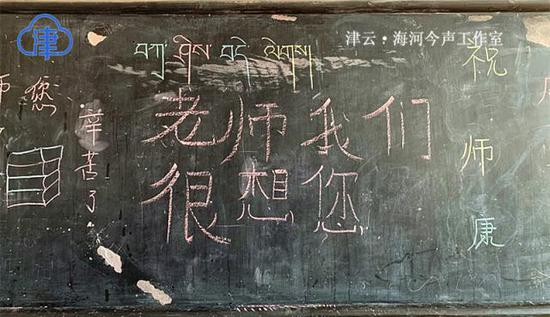 津云·海河今声工作室
བཀྲ་ཤིས་བདེ་ལེགས།
老师我们
很想您
师您
辛苦了
祝
师
康